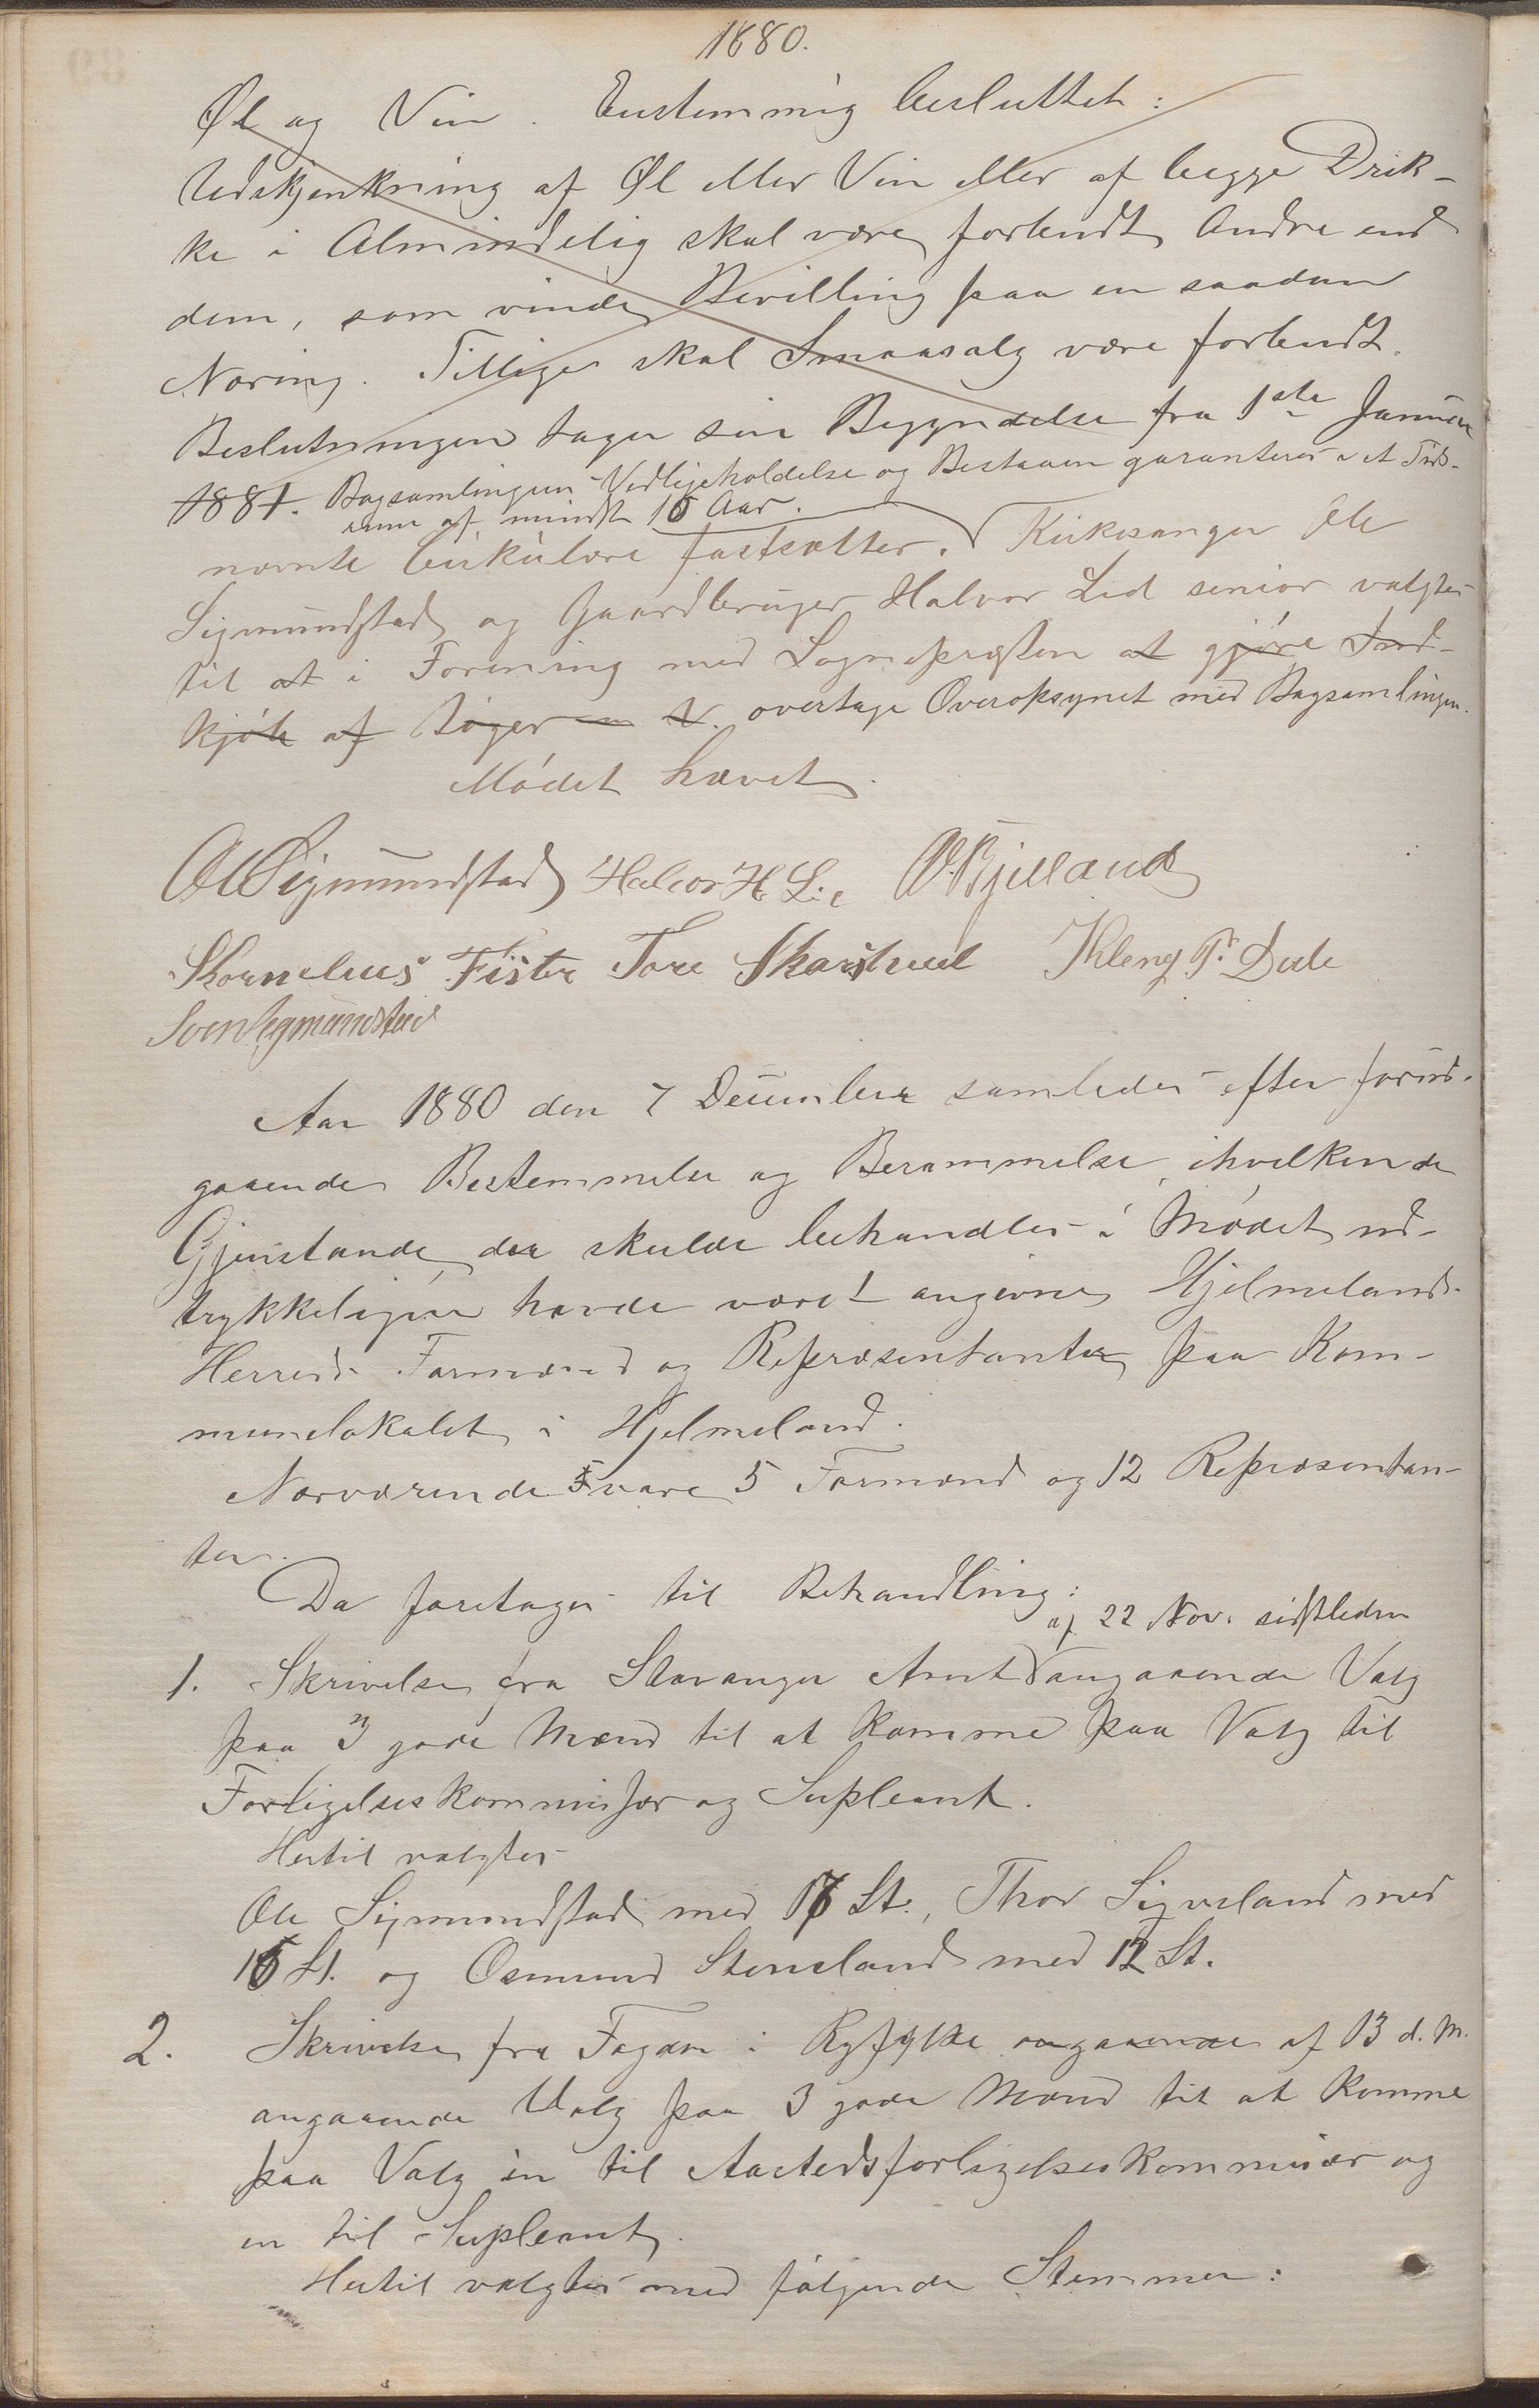 1880.
Øl og Vin. Enstemmig besluttet:
Udskjenkning af Øl eller Vin eller af begge Drik-
ke i Almindelig skal være forbudt Andre end
dem, som vinde Bevilling paa en saadan
Næring. Tillige skal Smaasalg være forbudt.
Beslutningen tager sin Begyndelse fra 1ste Januar
1881. Bogsamlingens Vedligeholdelse og Bestaaen garanteres i et Tids-
rum af mindst 10 Aar.
nævnte Cirkulære fastsætter. Kirkesanger Ole
Sigmundstad og Gaardbruger Halvor Lid senior valgtes
til at i Forening med Sognepresten at gjöre Ind-
kjöb af Böger overtage Overopsynet med Bogsamlingen.
Mödet hævet.
Ol Sigmundstad Halvor H. Lie O. Bjelland
Skornelius Fister Tore Skarstveit Kleng P. Dale
Sven Sigmundstad
Aar 1880 den 7 December samledes efter forud-
gaaende Bestemmelse og Berammelse, ihvilken de
Gjenstande, der skulde behandles i Mödet ud-
trykkeligen havde været angivne, Hjelmelands
Herreds Formænd og Repræsentanter paa Kom-
munelokalet i Hjelmeland.
Nærværende vare 5 Formænd og 12 Repræsentan-
ter.
Da foretages til Behandling:
af 22 Nov. sidstleden
1. Skrivelse fra Stavanger Amt angaaende Valg
paa 3 gode Mænd til at komme paa Valg til
Forligelseskommissær og Supleant.
Hertil valgtes
Ole Sigmundstad med 17 St., Thor Sigvesland med
16 St. og Osmund Stensland med 12 St.
2. Skrivelse fra Fogden i Ryfylke angaaende af 13 d. M.
angaaende Valg paa 3 gode Mænd til at komme
paa Valg en til Aastedsforligelseskommissær og
en til Supleant.
Hertil valgtes med fölgende Stemmer: